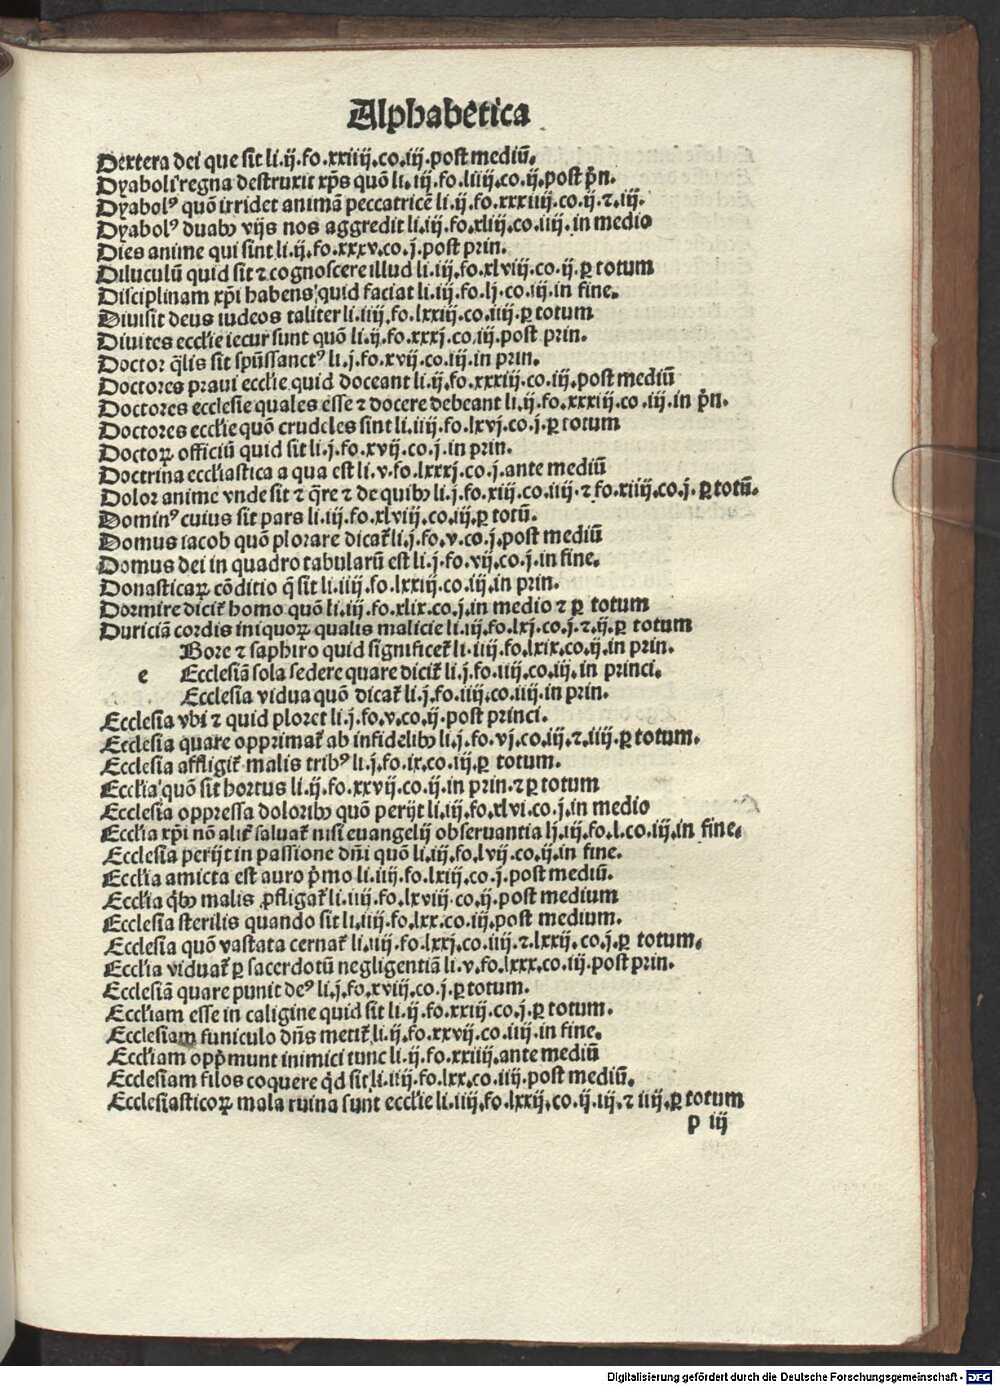 Alphabetica
Dextera dei que sit li.ij.fo.xxiiij.co.iij.post mediũ.
Dyaboli regna destruxit xp̃s quõ li.iij.fo.liiij.co.ij.post p̃n.
Dyabolꝰ quõ irridet animã peccatricẽ li.ij.fo.xxxiiij.co.ij.⁊.iij.
Dyabolꝰ duabꝫ vijs nos aggredit li.iij.fo.xliij.co.iiij.in medio
Dies anime qui sint li.ij.fo.xxxv.co.j.post prin.
Diluculũ quid sit ⁊ cognoscere illud li.iij.fo.xlviij.co.ij.ꝑ totum
Disciplinam xp̃i habens quid faciat li.iij.fo.lj.co.iij.in fine.
Diuisit deus iudeos taliter li.iiij.fo.lxxiij.co.iiij.ꝑ totum
Diuites eccl̃ie iecur sunt quõ li.ij.fo.xxxj.co.iij.post prin.
Doctor q̃lis sit sp̃ussanctꝰ li.j.fo.xvij.co.iij.in prin.
Doctores praui eccl̃ie quid doceant li.ij.fo.xxxiij.co.iij.post mediũ
Doctores ecclesie quales esse ⁊ docere debeant li.ij.fo.xxxiij.co.iij.in p̃n.
Doctores eccl̃ie quõ crudeles sint li.iiij.fo.lxvj.co.j.ꝑ totum
Doctoꝝ officiũ quid sit li.j.fo.xvij.co.j.in prin.
Doctrina eccl̃iastica a qua est li.v.fo.lxxxj.co.j.ante mediũ
Dolor anime vnde sit ⁊ q̃re ⁊ de quibꝫ li.j.fo.xiij.co.iiij.⁊ fo.xiiij.co.j.ꝑ totũ.
Dominꝰ cuius sit pars li.iij.fo.xlviij.co.iij.ꝑ totũ.
Domus iacob quõ plorare dicat̃ li.j.fo.v.co.j.post mediũ
Domus dei in quadro tabularũ est li.j.fo.vij.co.j.in fine.
Donasticaꝝ cõditio q̃ sit li.iiij.fo.lxxiij.co.iij.in prin.
Dormire dicit̃ homo quõ li.iij.fo.xlix.co.j.in medio ⁊ ꝑ totum
Duriciã cordis iniquoꝝ qualis malicie li.iij.fo.lxj.co.j.⁊.ij.ꝑ totum
Bore ⁊ saphiro quid significet̃ li.iiij.fo.lxix.co.ij.in prin.
e Ecclesiã sola sedere quare dicit̃ li.j.fo.iiij.co.iij.in princi.
Ecclesia vidua quõ dicat̃ li.j.fo.iiij.co.iiij.in prin.
Ecclesia vbi ⁊ quid ploret li.j.fo.v.co.ij.post princi.
Ecclesia quare opprimat̃ ab infidelibꝫ li.j.fo.vj.co.iij.⁊.iiij.ꝑ totum.
Ecclesia affligit̃ malis tribꝰ li.j.fo.ix.co.iij.ꝑ totum.
Eccl̃ia quõ sit hortus li.ij.fo.xxvij.co.ij.in prin.⁊ ꝑ totum
Ecclesia oppressa doloribꝫ quõ perijt li.iij.fo.xlvi.co.j.in medio
Eccl̃ia xp̃i nõ alit̃ saluat̃ nisi euangelij obseruantia lj.iij.fo.l.co.iij.in fine.
Ecclesia perijt in passione dñi quõ li.iij.fo.lvij.co.ij.in fine.
Eccl̃ia amicta est auro p̃mo li.iiij.fo.lxiij.co.j.post mediũ.
Eccl̃ia q̃bꝫ malis ꝓfligat̃ li.iiij.fo.lxviij.co.ij.post medium
Ecclesia sterilis quando sit li.iiij.fo.lxx.co.iij.post medium.
Ecclesia quõ vastata cernat̃ li.iiij.fo.lxxj.co.iiij.⁊.lxxij.co.j.ꝑ totum.
Eccl̃ia viduat̃ ꝑ sacerdotũ negligentiã li.v.fo.lxxx.co.iij.post prin.
Ecclesiã quare punit deꝰ li.j.fo.xviij.co.j.ꝑ totum.
Eccl̃iam esse in caligine quid sit li.ij.fo.xxiij.co.j.ꝑ totum.
Ecclesiam funiculo dñs metit̃ li.ij.fo.xxvij.co.iiij.in fine.
Eccl̃iam opp̃munt inimici tunc li.ij.fo.xxiiij.ante mediũ
Ecclesiam filos coquere q̃d sit li.iiij.fo.lxx.co.iiij.post mediũ.
Ecclesiasticoꝝ mala ruina sunt eccl̃ie li.iiij.fo.lxxij.co.ij.iij.⁊ iiij.ꝑ totum
p iij
Digitalisierung gefördert durch die Deutsche Forschungsgemeinschaft - DFG